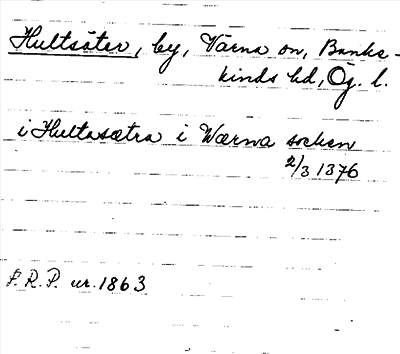 Hultsäter, by, Värna sn, Banke-
kinds hd, Ög. l.
i Hultasætra i Wærna socken
2/3 1376
P.R.P. nr. 1863